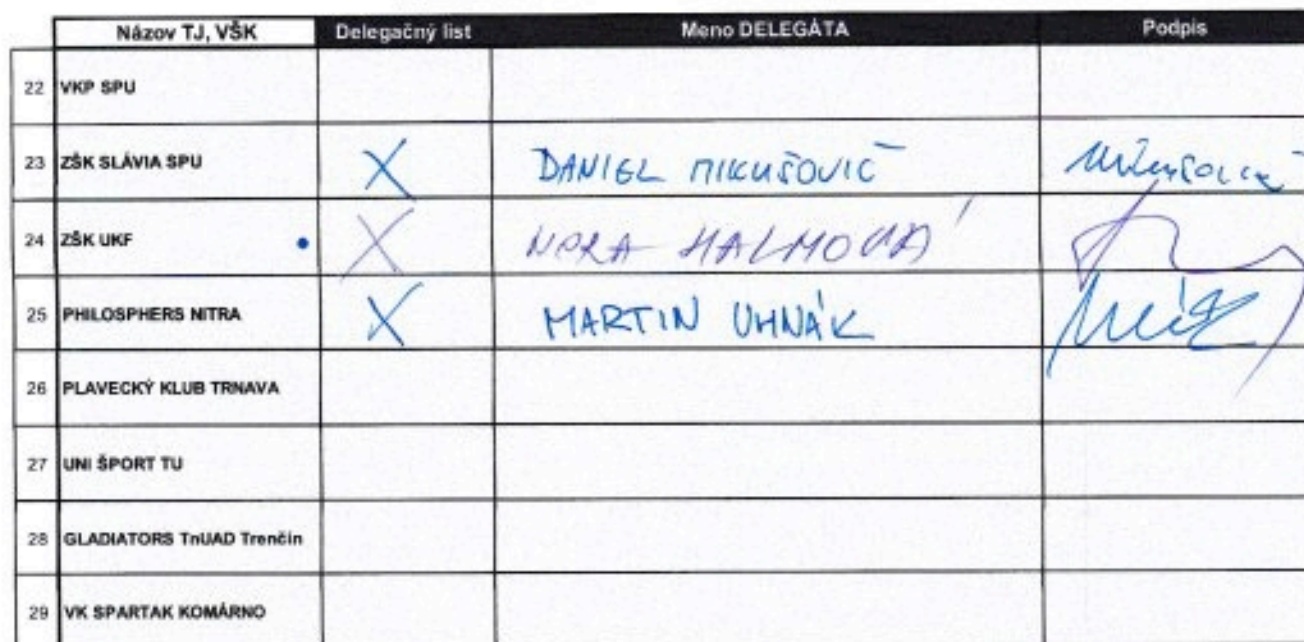 Názov TJ, VŠK Delegačný list Meno DELEGÁTA Podpis
22 VKP SPU
23 ZŠK SLÁVIA SPU X DANIEL MIKUŠOVIČ Mikušovič
24 ZŠK UKF X NORA HALMOVÁ
25 PHILOSPHERS NITRA X MARTIN UHNÁK
26 PLAVECKÝ KLUB TRNAVA
27 UNI ŠPORT TU
28 GLADIATORS TnUAD Trenčín
29 VK SPARTAK KOMÁRNO